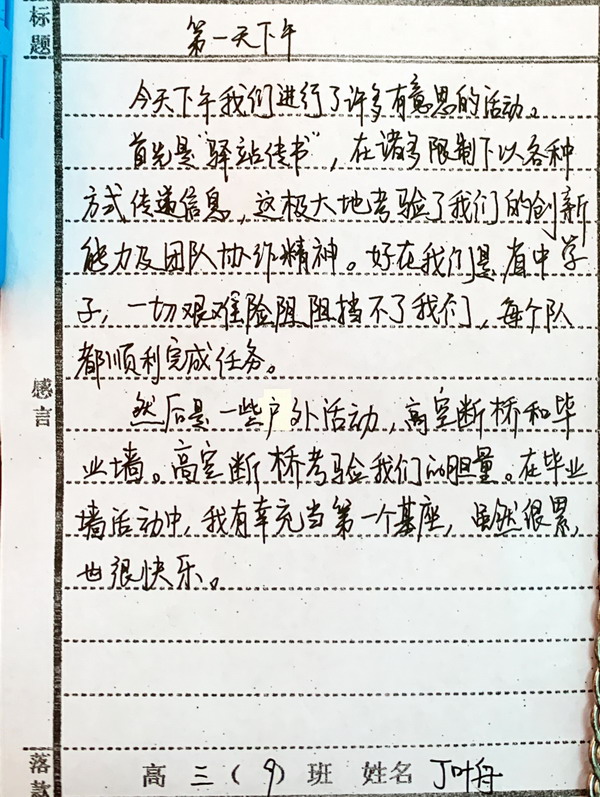 标题
第一天下午
今天下午我们进行了许多有意思的活动。
首先是"驿站传书",在诸多限制下以各种
方式传递信息,这极大地考验了我们的创新
能力及团队协作精神。好在我们是省中学
子,一切艰难险阻阻挡不了我们,每个队
都顺利完成任务。
感言
然后是一些户外活动,高空断桥和毕
业墙。高空断桥考验我们的胆量。在毕业
墙活动中,我有幸充当第一个基座,虽然很累,
也很快乐。
落款
高三(9)班 姓名 丁叶舟